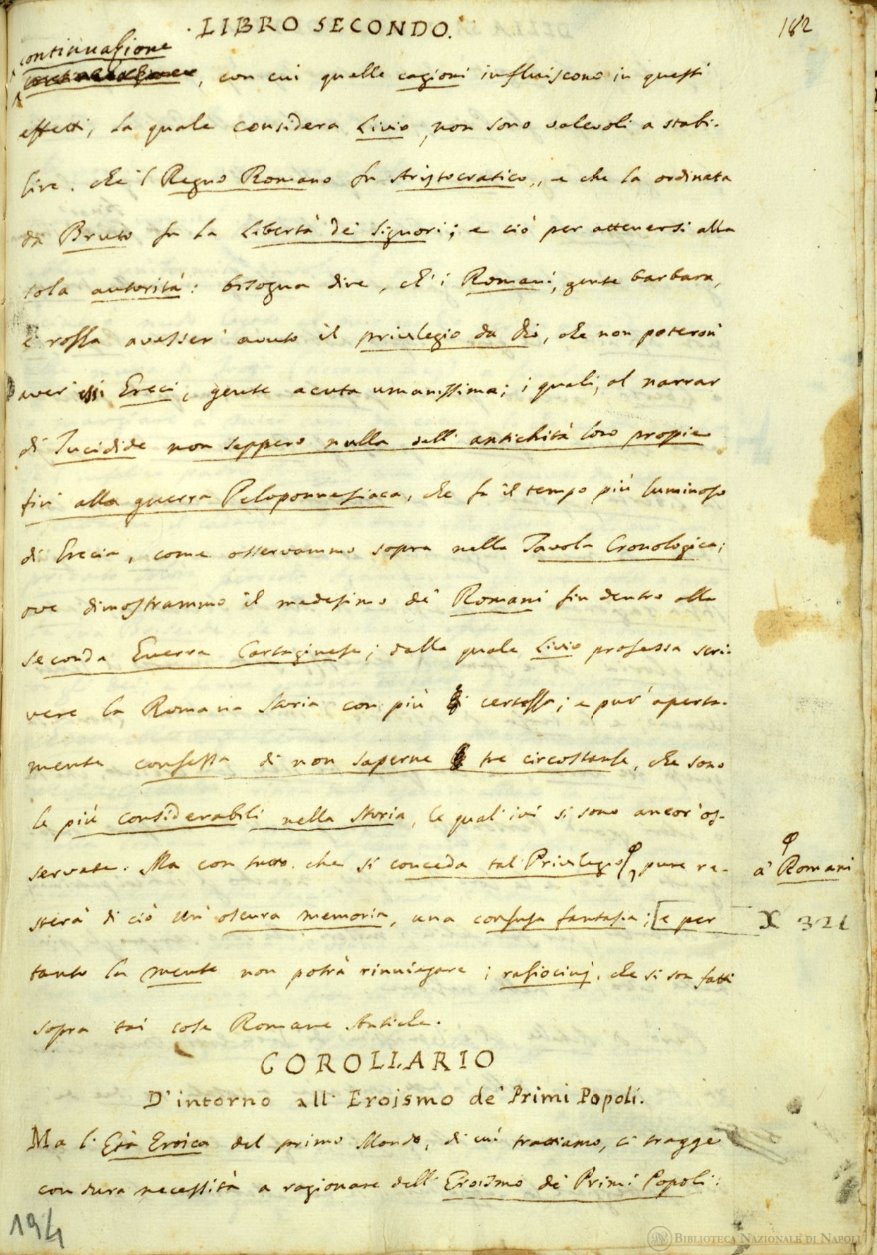 LIBRO SECONDO.
182
continuazione
, con cui quelle cagioni influiscono in questi
effetti, la quale considera Livio, non sono valevoli a stabi-
lire, che 'l Regno Romano fu Aristocratico, e che la ordinata
da Bruto fu la Libertà de' Signori; e ciò per attenersi alla
sola autorità: bisogna dire, ch' i Romani, gente barbara,
e rozza avesser' avuto il privilegio da Dio, che non poteron'
aver' essi Greci, gente acuta umanissima; i quali, al narrar
di Tucidide non seppero nulla dell' antichità loro propie
fin' alla guerra Peloponnesiaca, che fu il tempo più luminoso
di Grecia, come osservammo sopra nella Tavola Cronologica;
ove dimostrammo il medesimo de' Romani fin dentro alla
seconda Guerra Cartaginese; dalla quale Livio professa scri-
vere la Romana Storia con più certezza; e pur' aperta-
mente confessa di non saperne tre circostanze, che sono
le più considerabili nella Storia, le qual' ivi si sono ancor' os-
servate. Ma con tutto che si conceda tal Privilegio, pure re-
à Romani
sterà di ciò un' oscura memoria, una confusa fantasia; [e per
X 321
tanto la mente non potrà rinniegare i raziocinj, che si son fatti
sopra tai cose Romane Antiche.
COROLLARIO
D'intorno all' Eroismo de' Primi Popoli.
Ma l' Età Eroica del primo Mondo, di cui trattiamo, ci tragge
con dura necessità a ragionare dell' Eroismo de' Primi Popoli:
194
BIBLIOTECA NAZIONALE DI NAPOLI